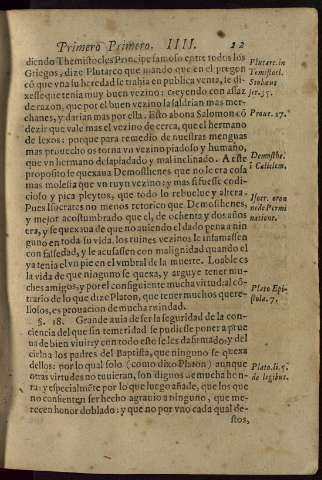 Primero Primero. IIII. 22
diendo Themistocles Principe famoso entre todos los
Griegos, dize Plutarco que mandò que en el pregon
cõ que vna su heredad se trahia en publica venta, se di-
xesse que tenia muy buen vezino: creyendo con assaz
de razon, que por el buen vezino la saldrian mas mer-
chanes, y darian mas por ella. Esto abona Salomon cõ
dezir que vale mas el vezino de cerca, que el hermano
de lexos: porque para remedio de nuestras menguas
mas prouecho os torna vn vezino piadoso y humano,
que vn hermano desapiadado y mal inclinado. A este
proposito se quexaua Demosthenes que no le era cosa
mas molesta que vn ruyn vezino: y mas si fuesse codi-
cioso y pica pleytos, que todo lo rebuelue y altera.
Pues Isocrates no menos retorico que Demosthenes,
y mejor acostumbrado que el, de ochenta y dos años
era, y se quexaua de que no auiendo el dado pena a nin
guno en toda su vida, los ruines vezinos le infamassen
con falsedad, y le acusassen con malignidad quando el
ya tenia el vn pie en el vmbral de la muerte. Loable es
la vida de que ninguno se quexa, y arguye tener mu-
ches amigos, y por el consiguiente mucha virtud: al cõ
trario de lo que dize Platon, que tener muchos quere-
llosos, es prouacion de mucha ruindad.
§. 18. Grande auia de ser la seguridad de la con-
ciencia del que sin temeridad se pudiesse poner a prue
ua de bien viuir, y con todo esto se les da firmado, y del
cielo a los padres del Baptista, que ninguno se quexa
dellos: por lo qual solo (como dixo Platon) aunque
otras virtudes no tuuieran, son dignos de mucha hon-
ra: y especialmẽte por lo que luego añade, que los que
no consienten ser hecho agrauio a ninguno, que me-
recen honor doblado: y que no por vno cada qual de-
stos,
Plutarc. in
Temistocl.
Stobæus
ser. 35.
Prouer. 27.
Demosthe.
i Caliclem.
Isocr. oron
ne de Permu
tatione.
Plato Epi-
stola. 7.
Plato. li. 5.
de legibus.